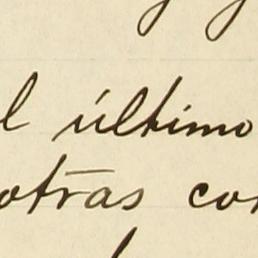 l último
otras con